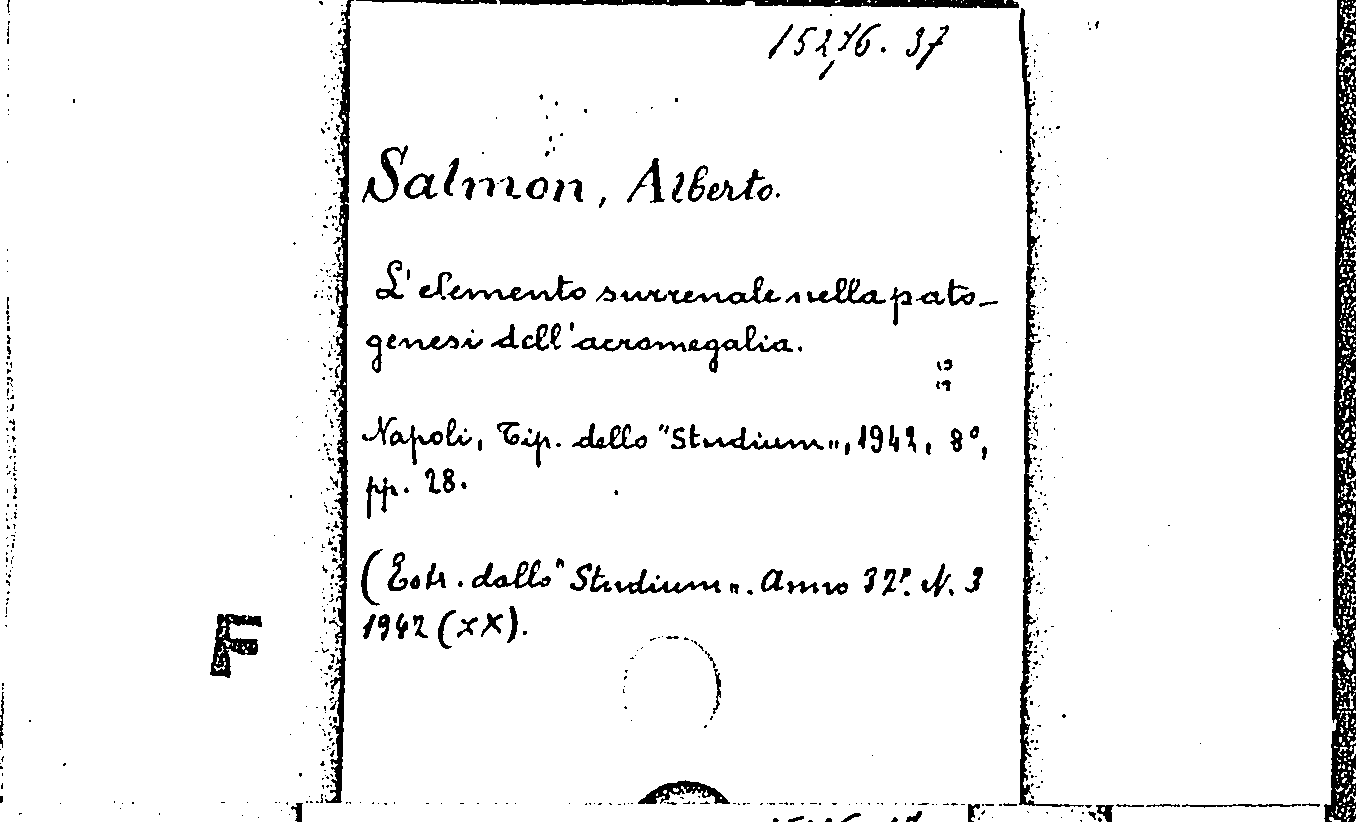 15276. 37
Salmon, Alberto.
L'elemento surrenale nella pato-
genesi dell'acromegalia.
Napoli, Tip. dello "Studium", 1942, 8°,
pp. 28.
(Estr. dallo "Studium". Anno 32°. N. 3
1942 (XX).
F